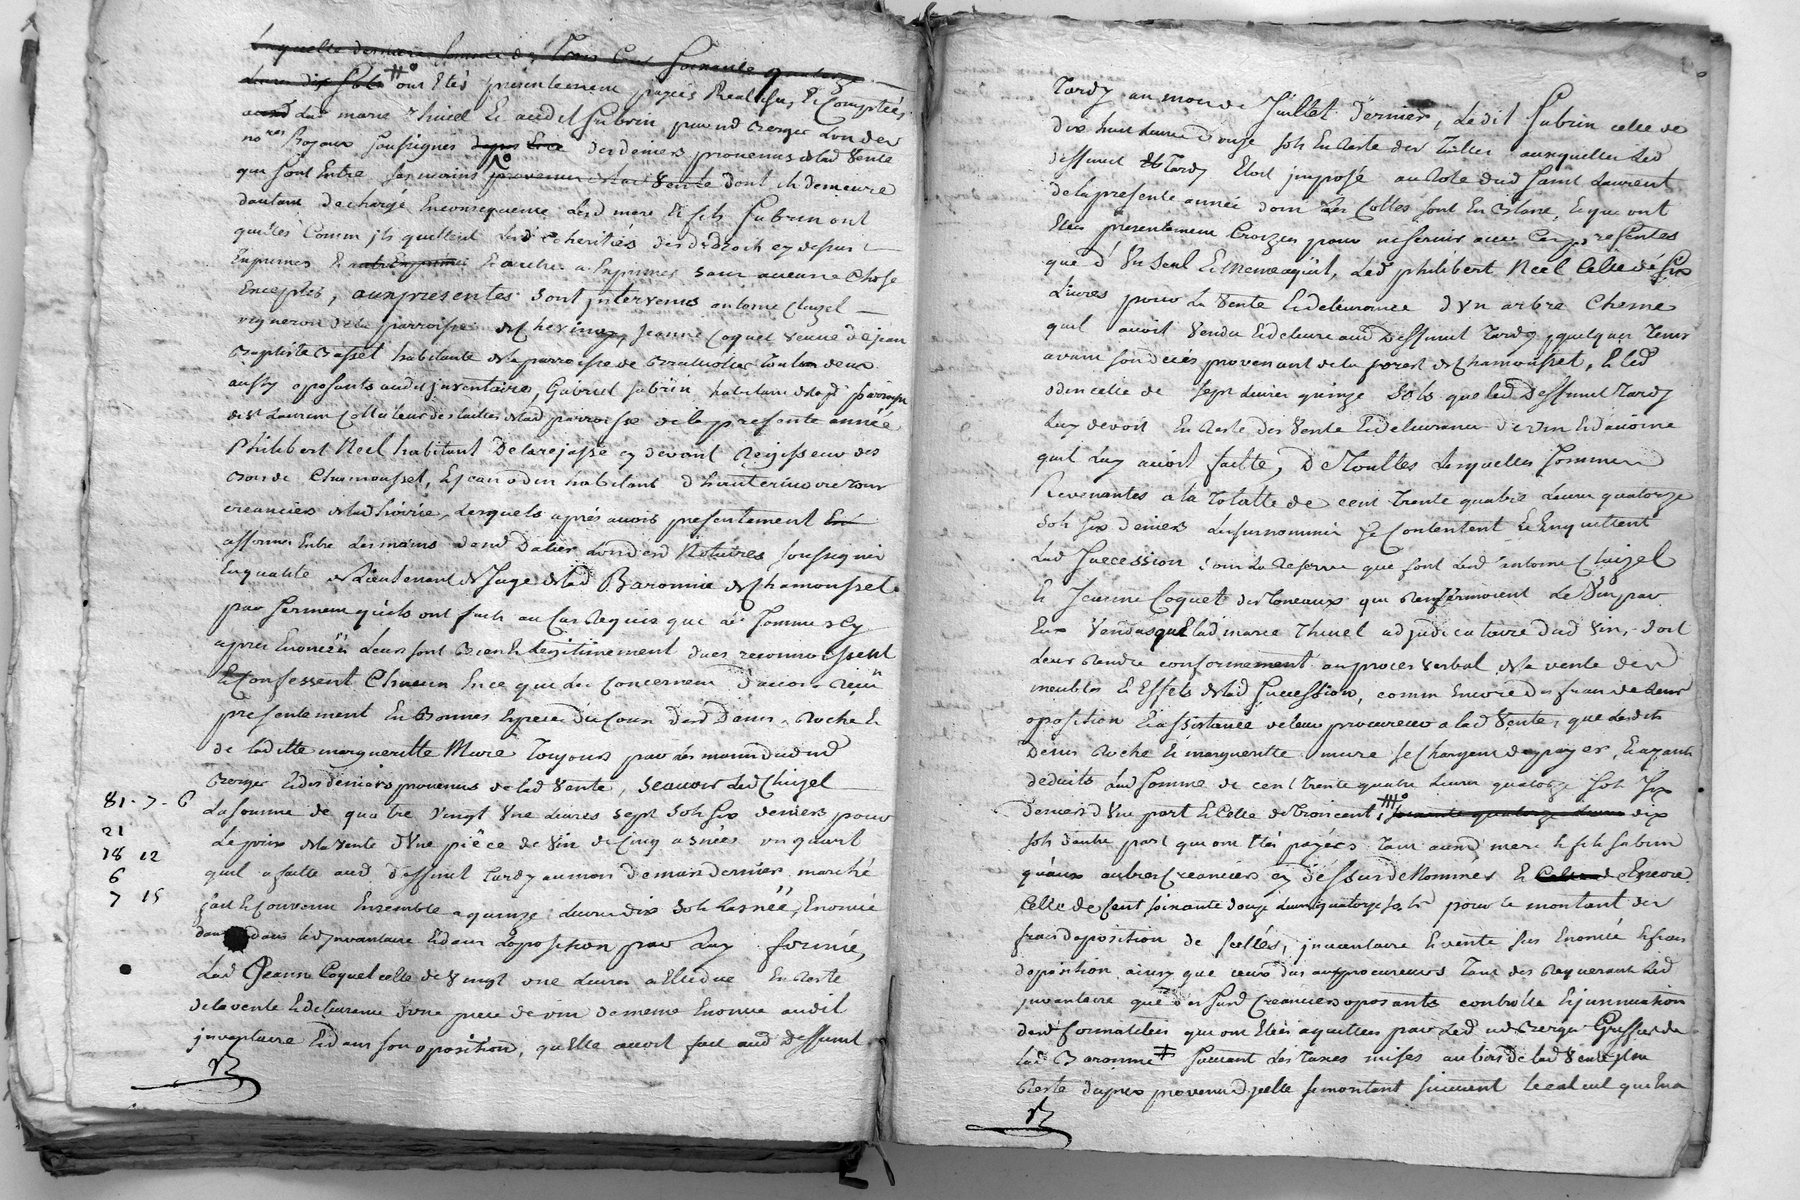 laquelle derniere somme de Trois Cent soixante quatorze
livres dix sols ont Etés presentement payés Realisés, Et Comptés
aud lad marie thivel Et audit fabrin par md Berger L'un des
nores Royaux soussignés des deniers provenus de lad vente
qui sont Entre ses mains provenus de lad vente dont il demeure
dautant dechargé En consequence lesd mere Et fils fabrin ont
quittés Comm ils quittent lesd coherities desd Roch cy dessus
Exprimés Et autres a Exprimer sans aucune Chose
Excepter, aux presentes sont intervenus antoine Chizel
vigneron de la parroisse de Chevinay, Jeanne Coquet veuve de jean
Baptiste Basset habitante de la parroisse de tous deux
aussy oposants aud inventaire, Gabriel fabrin habitant de lad parroisse
de St Laurent Collecteur des tailles de lad parroisse de la presente année
Philibert Neel habitant De larejasse cy devant Regisseur des
Bois de Chamousset, Et jean odin habitant d'hauterivoire tous
creanciers de lad hoirie, Lesquels après avoir presentement
affirmé Entre les mains dud Dalier L'un desd Notaires soussignés
En qualité de Lieutenant de Juge de lad Baronnie de Chamousset
par serment qu'ils ont fait au Cas Requis que les sommes cy
apres Enoncées Leurs sont Bien Et Legitimement dues reconnoissent
Et Confessent Chacun En ce qui les Concernent D'avoir Reçu
presentement En Bonnes Especes du Cours desd Denis Roche Et
de laditte margueritte Mure toujours par les mains dud md
Berger Et des deniers provenus de lad vente, scavoir led Chizel
81 - 7 - 6 La somme de quatre vingt une Livres sept sols six deniers pour
21 Le prix de la vente d'une pièce de vin de Cinq asnées un quart
18 12 quil a faitte aud deffunt tardy au mois de mars dernier marché
6 fait Et Convenu Ensemble a quinze Livres dix sols Lasnée, Enoncée
7 15 dans led inventaire Et dans L'oposition par Luy formée,
Lad Jeanne Coquet celle de vingt une Livres a Elle due En Reste
de la vente Et delivrance d'une piece de vin de meme Enoncée audit
inventaire Et dans son oposition, qu'elle avoit fait aud deffunt
Tardy au mois de Juillet Dernier, Ledit fabrin celle de
dix huit livres douze sols En Reste des Tailles auxquelles led
deffunt Tardy Etoit imposé au Role dud Saint Laurent
de la presente année dont les Cottes sont En Blanc, Et que ont
Etés presentement Croizées pour ne servir avec Ces presentes
que d'un seul Et meme aquit, Led philibert Neel Celle de six
Livres pour la vente Et delivrance d'un arbre Chesne
quil avoit vendu Et delivré aud Deffunt Tardy, quelques Tems
avant son deces provenant de la forest de Chamousset, Et led
odin celle de sept Livres quinze sols que led Deffunt Tardy
Luy devoit En Reste des vente Et delivrance de vin Et davoine
quil Luy avoit faitte, De Toutes Lesquelles sommes
Revenantes a la Totalle de cent Trente quatre Livres quatorze
sols six deniers Les surnommés se Contentent Et En quittent
Lad succession sous La Reserve que font Lesd antoine Chizel
Et Jeanne Coquet des Toneaux qui Renfermoient Le Vin par
Eux vendu que lad marie Thivel adjudicataire dud vin, doit
Leur Rendre conformement au proces verbal de la vente des
meubles Et Effets de lad succession, comm Encore des frais de leur
oposition Et assistance de leur procureur a lad vente, que lesdits
Denis Roche Et margueritte mure se Chargent de payer, Et ayant
deduits Lad somme de cent Trente quatre Livres quatorze sols six
deniers d'une part Et Celle de Trois cent soixante quatorze Livres dix
sols d'autre part qui ont Etés payées Tant auxd mere Et fils fabrin
qu'aux autres Creanciers cy dessus denommés Et Encore
Celle de Cent soixante douze Livres quatorze sols pour le montant des
frais d'aposition de scellés, inventaire Et vente sus Enoncée Et frais
d'oposition, ainsy que ceux des procureurs Tant des Requerants led
inventaire que desd Creanciers oposants controlle Et insinuation
desd formalités qui ont Etés aquittées par Led md Berger Greffier de
lad Baronnie suivant Les Taxes mises au bas de lad vente, Le
Reste du prix provenu d'icelle se montant suivant le calcul qui En a